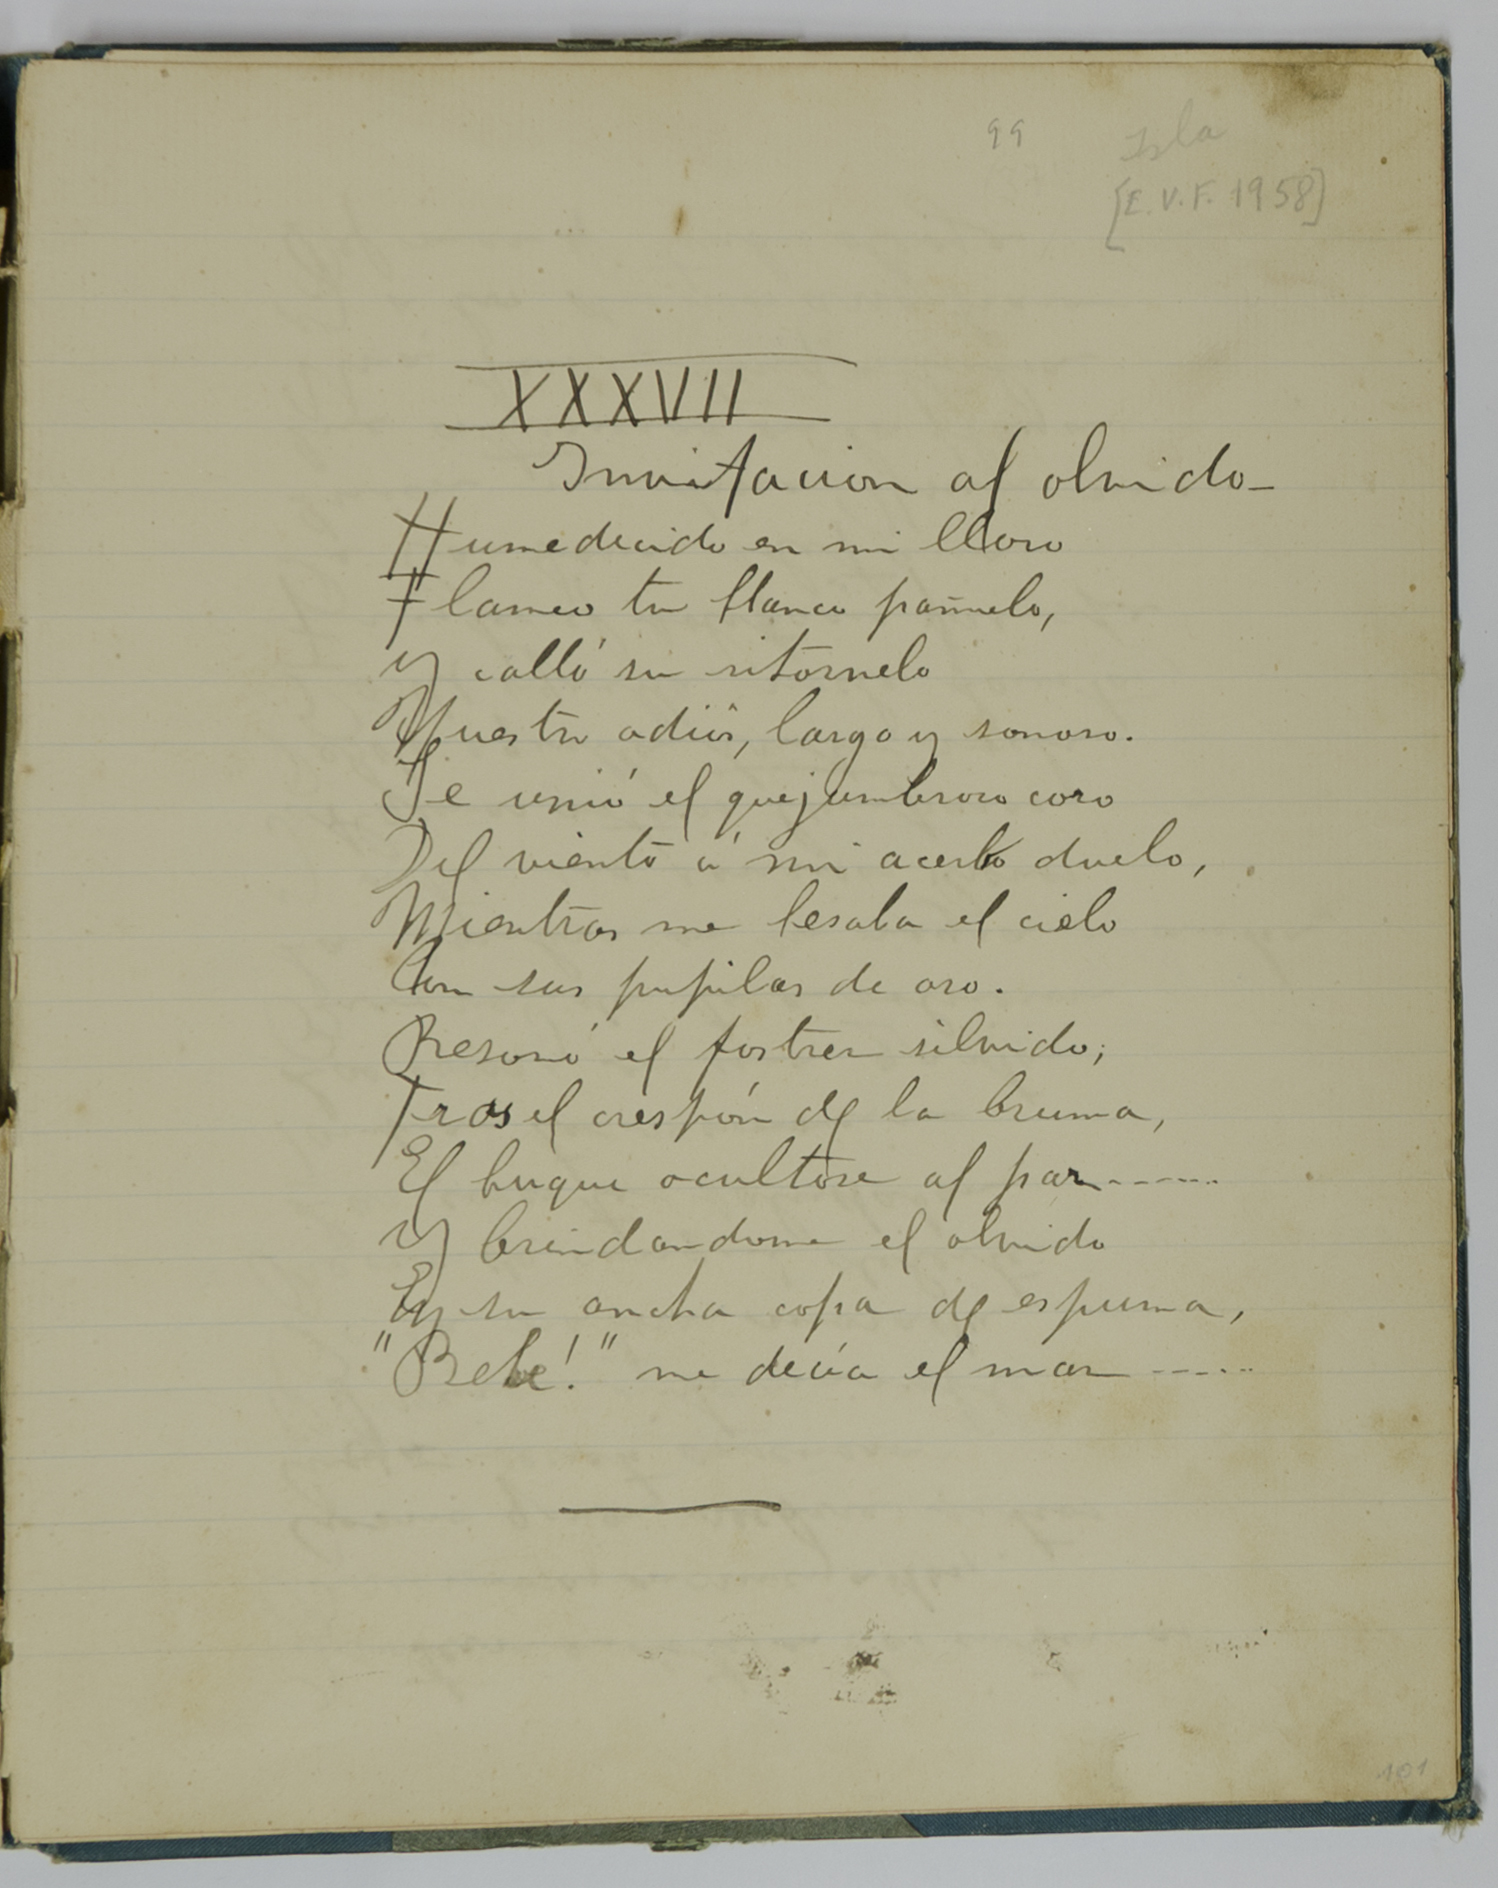 99
Isla
[E.V.F. 1958]
XXXVII
Invitacion al olvido—
Humedecido en mi lloro
Flameo tu blanco pañuelo,
Y calló su ritornelo
Nuestro adiós, largo y sonoro.
Se unió el quejumbroso coro
Del viento á mi acerbo duelo,
Mientras me besaba el cielo
Con sus pupilas de oro.
Resonó el postrer silvido;
Tras el crespón de la bruma,
El buque ocultose al par------
Y brindandome el olvido
En su ancha copa de espuma,
"Bebe!" me decía el mar -----
101